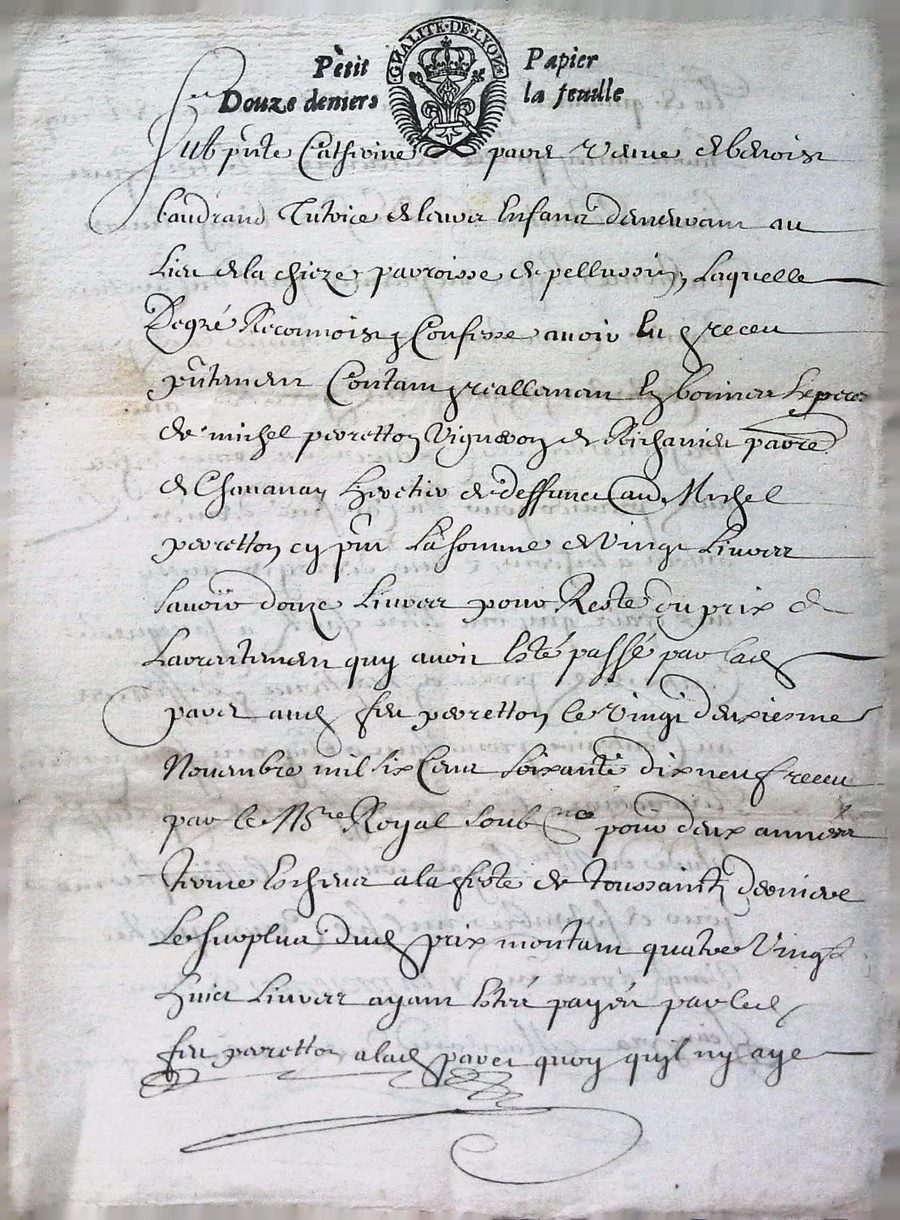 GNALITE·DE·LYON
Petit Papier
Douze deniers la feuille
Fut pñte Catherine paret vefve de benoist
baudrand Tutrice de leurs Enfans demeurant au
Lieu de la chieze parroisse de pellussin, Laquelle
De gré Reconnoist & Confesse avoir Eu & receu
pñtement Contant & reallement En bonnes Espèces
de michel perretton Vigneron de Richanieu parre
de Chavanay Heretier de deffunct au Michel
perretton cy pñt La somme de Vingt Livres
savoir douze Livres pour Reste du prix de
Larrentement quy avoit Esté passé par lad
paret aud feu perretton le Vingt deuxiesme
Novembre mil six Cent soixante dix neuf receu
par le No^re Royal soub^né pour deux années
terme Escheut a la feste de toussaintz derniere
Le surplus dud prix montant quatre Vingt
huict Livres ayant Esté payéz par led
feu perretton a lad paret quoy quyl ny aye